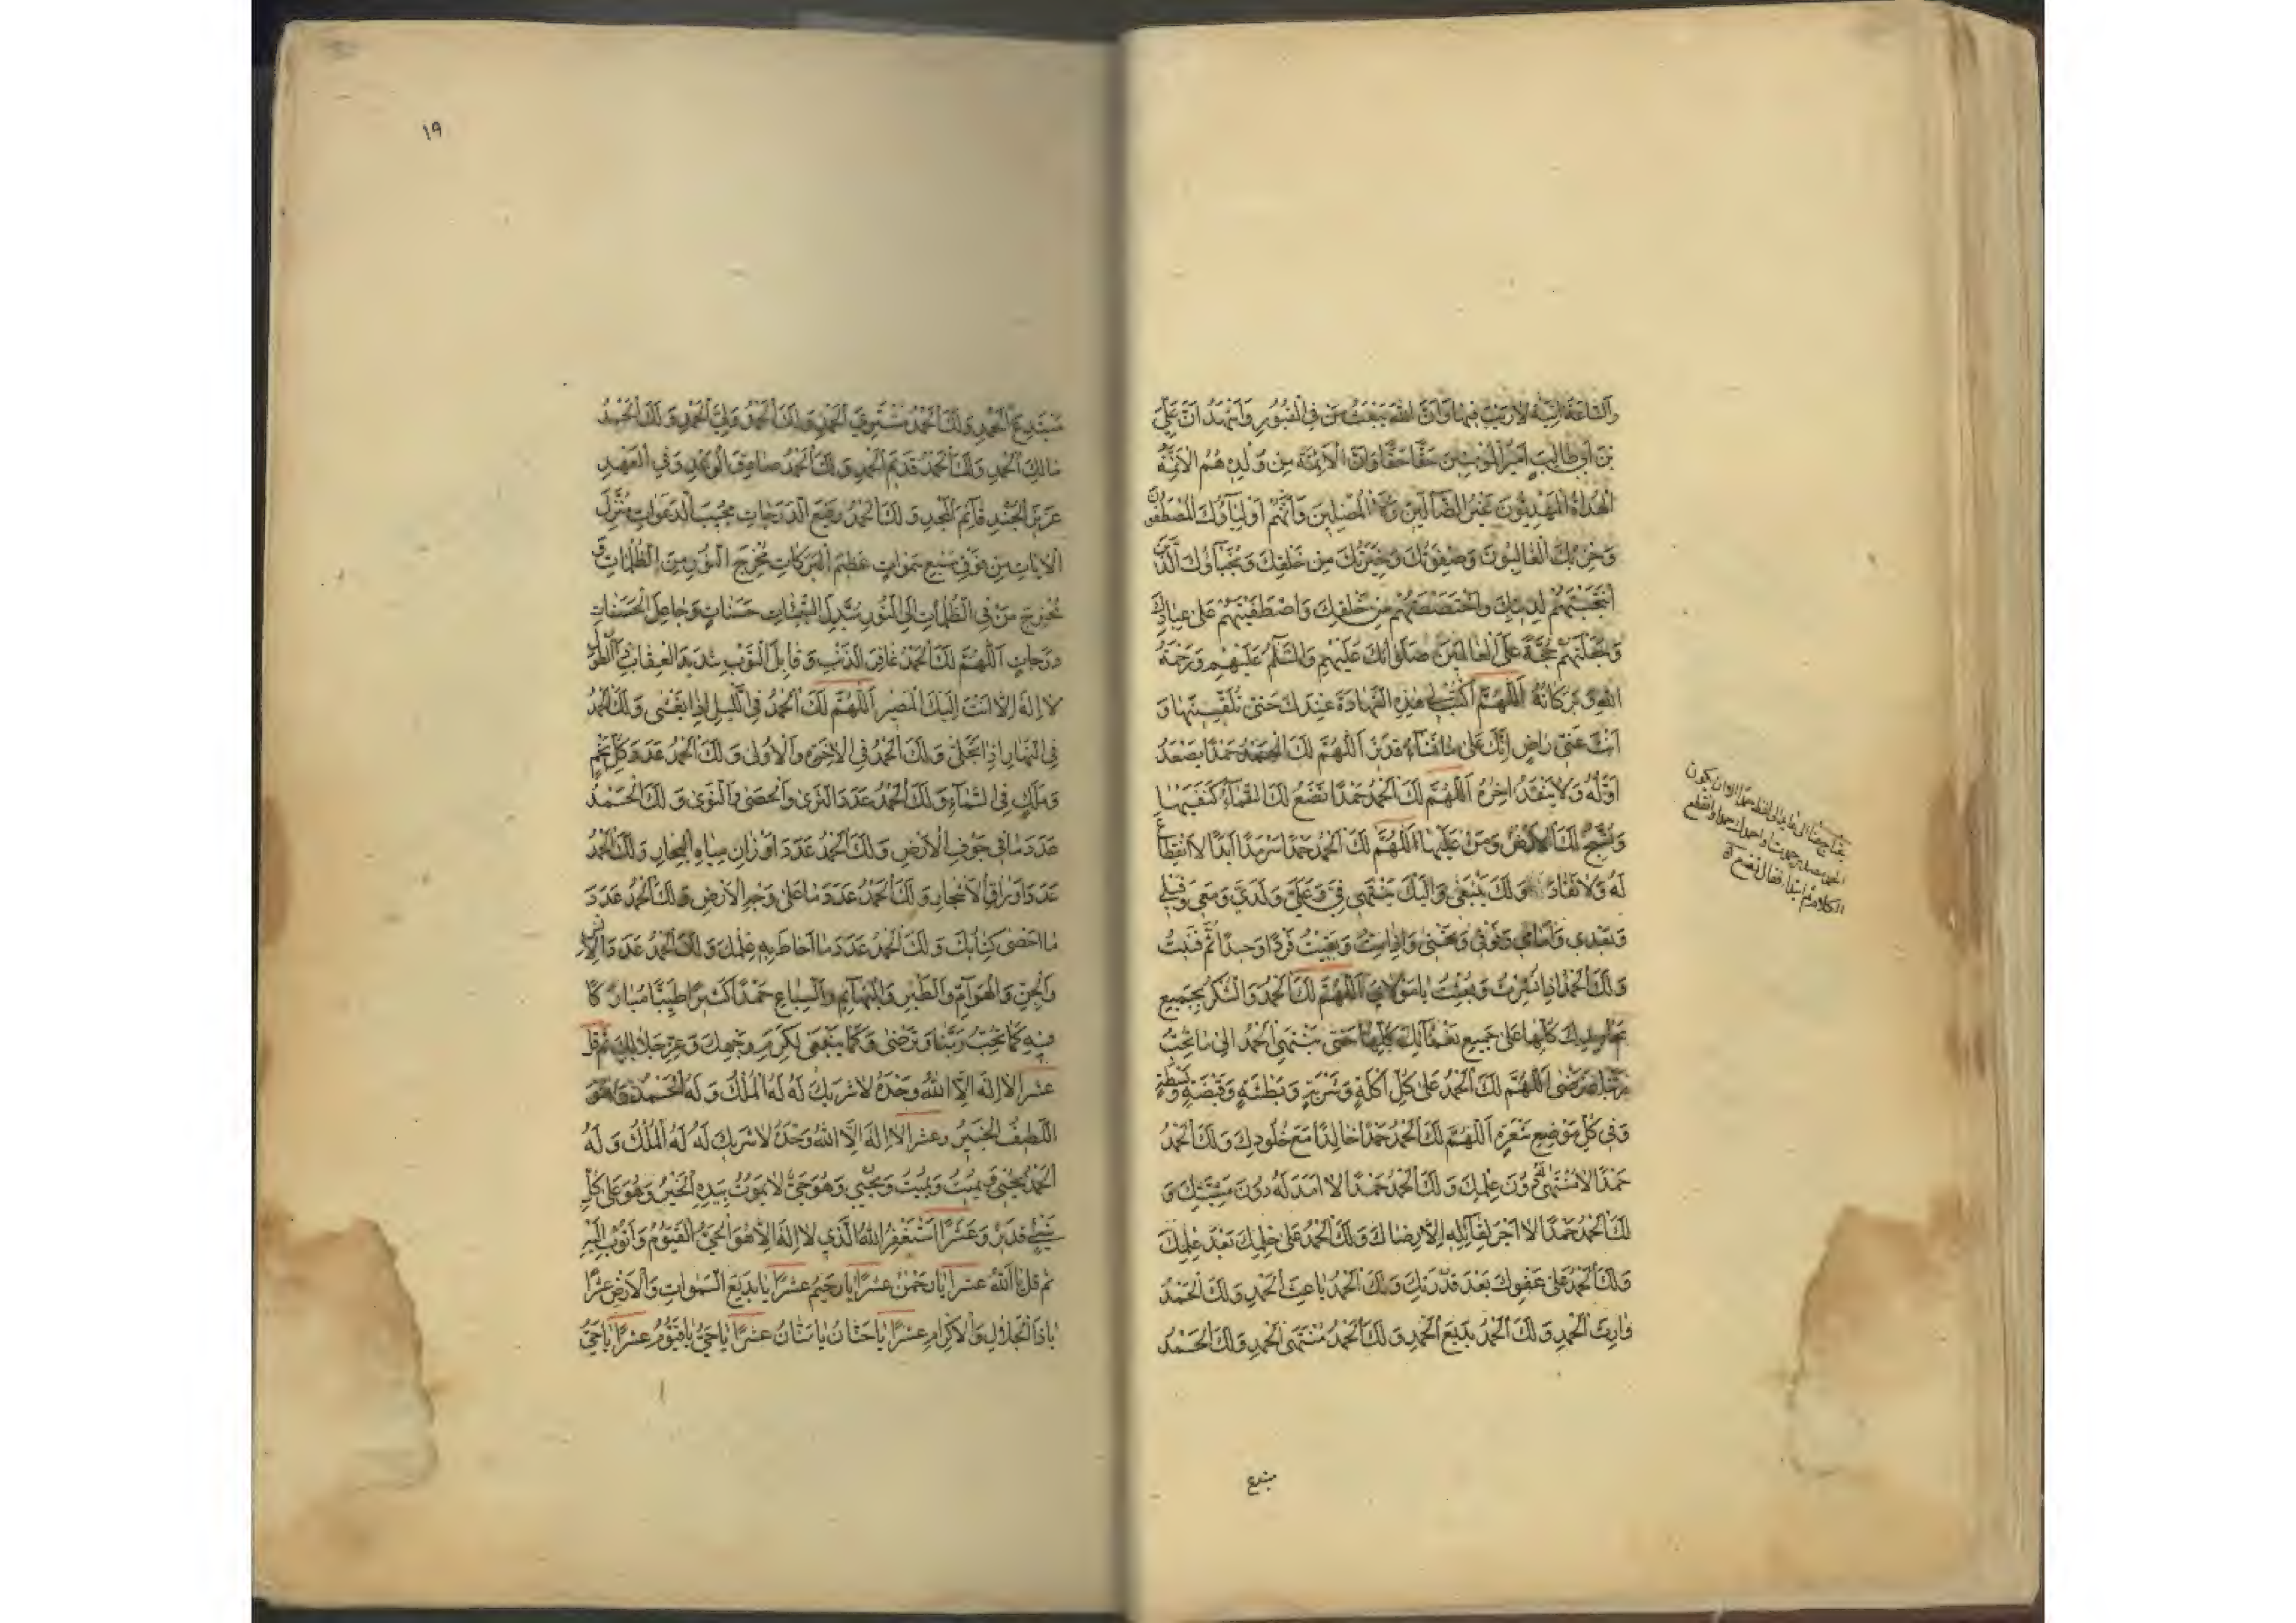 وَالسَّاعَةَ اتِيَةٌ لَارَيْبَ فِيهَا وَاَنَّ اللهَ يَبْعَثُ مَنْ فِي الْقُبُورِ وَاَشْهَدُ اَنَّ عَلِيَّ
بْنَ اَبِي طَالِبٍ اَمِيرُ الْمُؤْمِنِينَ حَقًّا حَقًّا وَاَنَّ الْاَئِمَّةَ مِنْ وُلْدِهِ هُمُ الْاَئِمَّةُ
الْهُدَاةُ الْمَهْدِيُّونَ غَيْرُ الضَّالِّينَ وَلَا الْمُضِلِّينَ وَاَنَّهُمْ اَوْلِيَآؤُكَ الْمُصْطَفَوْنَ
وَحِزْبُكَ الْغَالِبُونَ وَصِفْوَتُكَ وَخِيَرَتُكَ مِنْ خَلْقِكَ وَنُجَبَآؤُكَ الَّذِينَ
انْتَجَبْتَهُمْ لِدِينِكَ وَاخْتَصَصْتَهُمْ مِنْ خَلْقِكَ وَاصْطَفَيْتَهُمْ عَلَى عِبَادِكَ
وَجَعَلْتَهُمْ حُجَّةً عَلَى الْعَالَمِينَ صَلَوَاتُكَ عَلَيْهِمْ وَالسَّلَامُ عَلَيْهِمْ وَرَحْمَةُ
اللهِ وَبَرَكَاتُهُ اَللّٰهُمَّ اكْتُبْ لِي هٰذِهِ الشَّهَادَةَ عِنْدَكَ حَتَّى تُلَقِّنَنِيهَا وَ
اَنْتَ عَنِّي رَاضٍ اِنَّكَ عَلَى مَا تَشَآءُ قَدِيرٌ اَللّٰهُمَّ لَكَ الْحَمْدُ حَمْدًا يَصْعَدُ
اَوَّلُهُ وَلَا يَنْفَدُ اٰخِرُهُ اَللّٰهُمَّ لَكَ الْحَمْدُ حَمْدًا تَضَعُ لَكَ السَّمَآءُ كَنَفَيْهَا
وَتُسَبِّحُ لَكَ الْاَرْضُ وَمَنْ عَلَيْهَا اَللّٰهُمَّ لَكَ الْحَمْدُ حَمْدًا سَرْمَدًا اَبَدًا لَا انْقِطَاعَ
لَهُ وَلَا نَفَادَ وَلَكَ يَنْبَغِي وَاِلَيْكَ يَنْتَهِي فِيَّ وَعَلَيَّ وَلَدَيَّ وَمَعِي وَقَبْلِي
وَبَعْدِي وَاَمَامِي وَفَوْقِي وَتَحْتِي وَاِذَا مِتُّ وَبَقِيتُ فَرْدًا وَحِيدًا ثُمَّ فَنِيتُ
وَلَكَ الْحَمْدُ اِذَا نُشِرْتُ وَبُعِثْتُ يَا مَوْلَايَ اَللّٰهُمَّ لَكَ الْحَمْدُ وَالشُّكْرُ بِجَمِيعِ
مَحَامِدِكَ كُلِّهَا عَلَى جَمِيعِ نَعْمَآئِكَ كُلِّهَا حَتَّى يَنْتَهِيَ الْحَمْدُ اِلَى مَا تُحِبُّ
رَبَّنَا وَتَرْضَى اَللّٰهُمَّ لَكَ الْحَمْدُ عَلَى كُلِّ اَكْلَةٍ وَشَرْبَةٍ وَبَطْشَةٍ وَقَبْضَةٍ وَبَسْطَةٍ
وَفِي كُلِّ مَوْضِعِ شَعْرَةٍ اَللّٰهُمَّ لَكَ الْحَمْدُ حَمْدًا خَالِدًا مَعَ خُلُودِكَ وَلَكَ الْحَمْدُ
حَمْدًا لَا مُنْتَهَى لَهُ دُونَ عِلْمِكَ وَلَكَ الْحَمْدُ حَمْدًا لَا اَمَدَ لَهُ دُونَ مَشِيَّتِكَ وَ
لَكَ الْحَمْدُ حَمْدًا لَا اَجْرَ لِقَآئِلِهِ اِلَّا رِضَاكَ وَلَكَ الْحَمْدُ عَلَى حِلْمِكَ بَعْدَ عِلْمِكَ
وَلَكَ الْحَمْدُ عَلَى عَفْوِكَ بَعْدَ قُدْرَتِكَ وَلَكَ الْحَمْدُ بَاعِثَ الْحَمْدِ وَلَكَ الْحَمْدُ
وَارِثَ الْحَمْدِ وَلَكَ الْحَمْدُ بَدِيعَ الْحَمْدِ وَلَكَ الْحَمْدُ مُنْتَهَى الْحَمْدِ وَلَكَ الْحَمْدُ
مبتدع
١٩
مُبْتَدِعَ الْحَمْدِ وَلَكَ الْحَمْدُ مُشْتَرِيَ الْحَمْدِ وَلَكَ الْحَمْدُ وَلِيَّ الْحَمْدِ وَلَكَ الْحَمْدُ
مَالِكَ الْحَمْدِ وَلَكَ الْحَمْدُ قَدِيمَ الْحَمْدِ وَلَكَ الْحَمْدُ صَادِقَ الْوَعْدِ وَفِيَّ الْعَهْدِ
عَزِيزَ الْجُنْدِ قَآئِمَ الْمَجْدِ وَلَكَ الْحَمْدُ رَفِيعَ الدَّرَجَاتِ مُجِيبَ الدَّعَوَاتِ مُنْزِلَ
الْاٰيَاتِ مِنْ فَوْقِ سَبْعِ سَمَوَاتٍ عَظِيمَ الْبَرَكَاتِ مُخْرِجَ النُّورِ مِنَ الظُّلُمَاتِ وَ
مُخْرِجَ مَنْ فِي الظُّلُمَاتِ اِلَى النُّورِ مُبَدِّلَ السَّيِّئَاتِ حَسَنَاتٍ وَجَاعِلَ الْحَسَنَاتِ
دَرَجَاتٍ اَللّٰهُمَّ لَكَ الْحَمْدُ غَافِرَ الذَّنْبِ وَقَابِلَ التَّوْبِ شَدِيدَ الْعِقَابِ ذَا الطَّوْلِ
لَا اِلٰهَ اِلَّا اَنْتَ اِلَيْكَ الْمَصِيرُ اَللّٰهُمَّ لَكَ الْحَمْدُ فِي اللَّيْلِ اِذَا يَغْشَى وَلَكَ الْحَمْدُ
فِي النَّهَارِ اِذَا تَجَلَّى وَلَكَ الْحَمْدُ فِي الْاٰخِرَةِ وَالْاُولَى وَلَكَ الْحَمْدُ عَدَدَ كُلِّ نَجْمٍ
وَمَلَكٍ فِي السَّمَآءِ وَلَكَ الْحَمْدُ عَدَدَ الثَّرَى وَالْحَصَى وَالنَّوَى وَلَكَ الْحَمْدُ
عَدَدَ مَا فِي جَوْفِ الْاَرْضِ وَلَكَ الْحَمْدُ عَدَدَ اَوْزَانِ مِيَاهِ الْبِحَارِ وَلَكَ الْحَمْدُ
عَدَدَ اَوْرَاقِ الْاَشْجَارِ وَلَكَ الْحَمْدُ عَدَدَ مَا عَلَى وَجْهِ الْاَرْضِ وَلَكَ الْحَمْدُ عَدَدَ
مَا اَحْصَى كِتَابُكَ وَلَكَ الْحَمْدُ عَدَدَ مَا اَحَاطَ بِهِ عِلْمُكَ وَلَكَ الْحَمْدُ عَدَدَ الْاِنْسِ
وَالْجِنِّ وَالْهَوَآمِّ وَالطَّيْرِ وَالْبَهَآئِمِ وَالسِّبَاعِ حَمْدًا كَثِيرًا طَيِّبًا مُبَارَكًا
فِيهِ كَمَا تُحِبُّ رَبَّنَا وَتَرْضَى وَكَمَا يَنْبَغِي لِكَرَمِ وَجْهِكَ وَعِزِّ جَلَالِكَ ثم قل
عشرا لَا اِلٰهَ اِلَّا اللهُ وَحْدَهُ لَا شَرِيكَ لَهُ لَهُ الْمُلْكُ وَلَهُ الْحَمْدُ وَهُوَ
اللَّطِيفُ الْخَبِيرُ وعشرا لَا اِلٰهَ اِلَّا اللهُ وَحْدَهُ لَا شَرِيكَ لَهُ لَهُ الْمُلْكُ وَلَهُ
الْحَمْدُ يُحْيِي وَيُمِيتُ وَيُمِيتُ وَيُحْيِي وَهُوَ حَيٌّ لَا يَمُوتُ بِيَدِهِ الْخَيْرُ وَهُوَ عَلَى كُلِّ
شَيْءٍ قَدِيرٌ وَعَشْرًا اَسْتَغْفِرُ اللهَ الَّذِي لَا اِلٰهَ اِلَّا هُوَ الْحَيُّ الْقَيُّومُ وَاَتُوبُ اِلَيْهِ
ثم قل يَا اَللهُ عشرا يَا رَحْمٰنُ عشرًا يَا رَحِيمُ عشرًا يَا بَدِيعَ السَّمٰوَاتِ وَالْاَرْضِ عشرًا
يَا ذَا الْجَلَالِ وَالْاِكْرَامِ عشرًا يَا حَنَّانُ يَا مَنَّانُ عشرًا يَا حَيُّ يَا قَيُّومُ عشرًا يَا حَيُّ